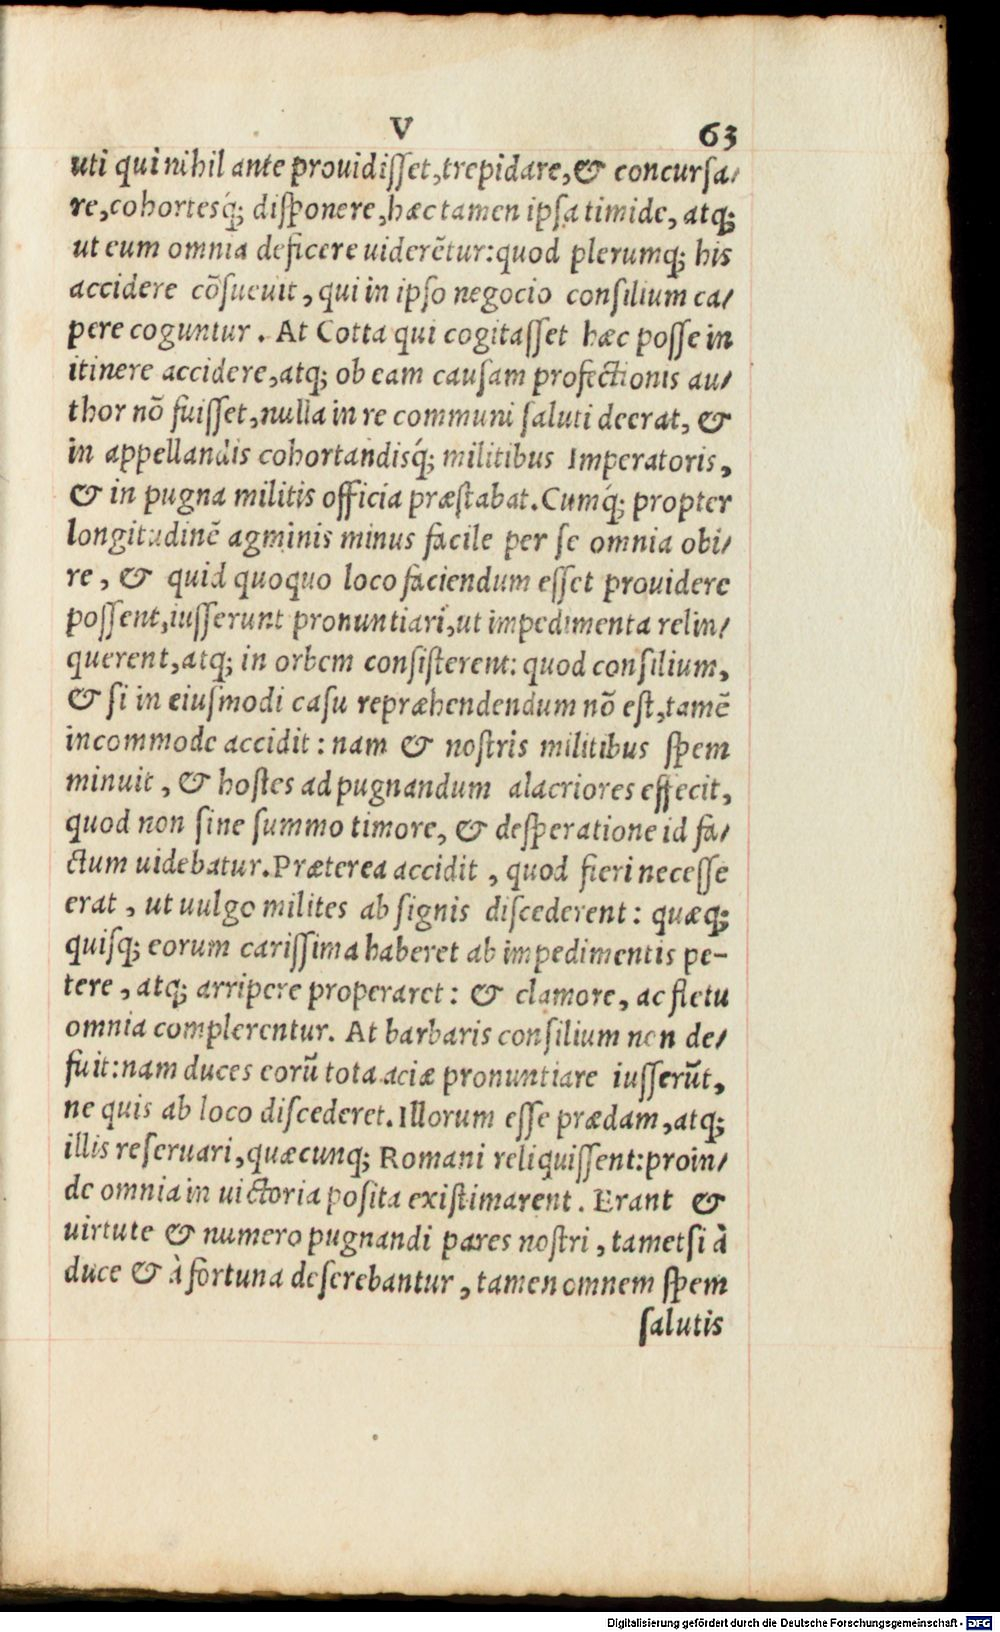 V 63
uti qui nihil ante prouidisset, trepidare, & concursa/
re, cohortesq́; disponere, hæc tamen ipsa timide, atq;
ut eum omnia deficere uiderẽtur: quod plerumq; his
accidere cõsueuit, qui in ipso negocio consilium ca/
pere coguntur. At Cotta qui cogitasset hæc posse in
itinere accidere, atq; ob eam causam profectionis au/
thor nõ fuisset, nulla in re communi saluti deerat, &
in appellandis cohortandisq́; militibus Imperatoris,
& in pugna militis officia præstabat. Cumq́; propter
longitudinẽ agminis minus facile per se omnia obi/
re, & quid quoquo loco faciendum esset prouidere
possent, iusserunt pronuntiari, ut impedimenta relin/
querent, atq; in orbem consisterent: quod consilium,
& si in eiusmodi casu repræhendendum nõ est, tamẽ
incommode accidit: nam & nostris militibus spem
minuit, & hostes ad pugnandum alacriores effecit,
quod non sine summo timore, & desperatione id fa/
ctum uidebatur. Præterea accidit, quod fieri necesse
erat, ut uulgo milites ab signis discederent: quæq;
quisq; eorum carissima haberet ab impedimentis pe-
tere, atq; arripere properaret: & clamore, ac fletu
omnia complerentur. At barbaris consilium non de/
fuit: nam duces eorũ tota aciæ pronuntiare iusserũt,
ne quis ab loco discederet. Illorum esse prædam, atq;
illis reseruari, quæcunq; Romani reliquissent: proin/
de omnia in uictoria posita existimarent. Erant &
uirtute & numero pugnandi pares nostri, tametsi à
duce & à fortuna deserebantur, tamen omnem spem
salutis
Digitalisierung gefördert durch die Deutsche Forschungsgemeinschaft - DFG